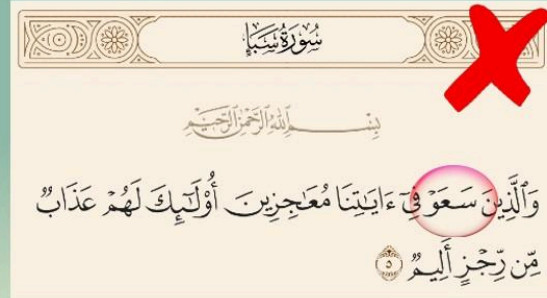 سُورَةُ سَبَإٍ
بِسْمِ ٱللَّهِ ٱلرَّحْمَٰنِ ٱلرَّحِيمِ
وَٱلَّذِينَ سَعَوْ فِىٓ ءَايَٰتِنَا مُعَٰجِزِينَ أُو۟لَٰٓئِكَ لَهُمْ عَذَابٌ
مِّن رِّجْزٍ أَلِيمٌ ٥